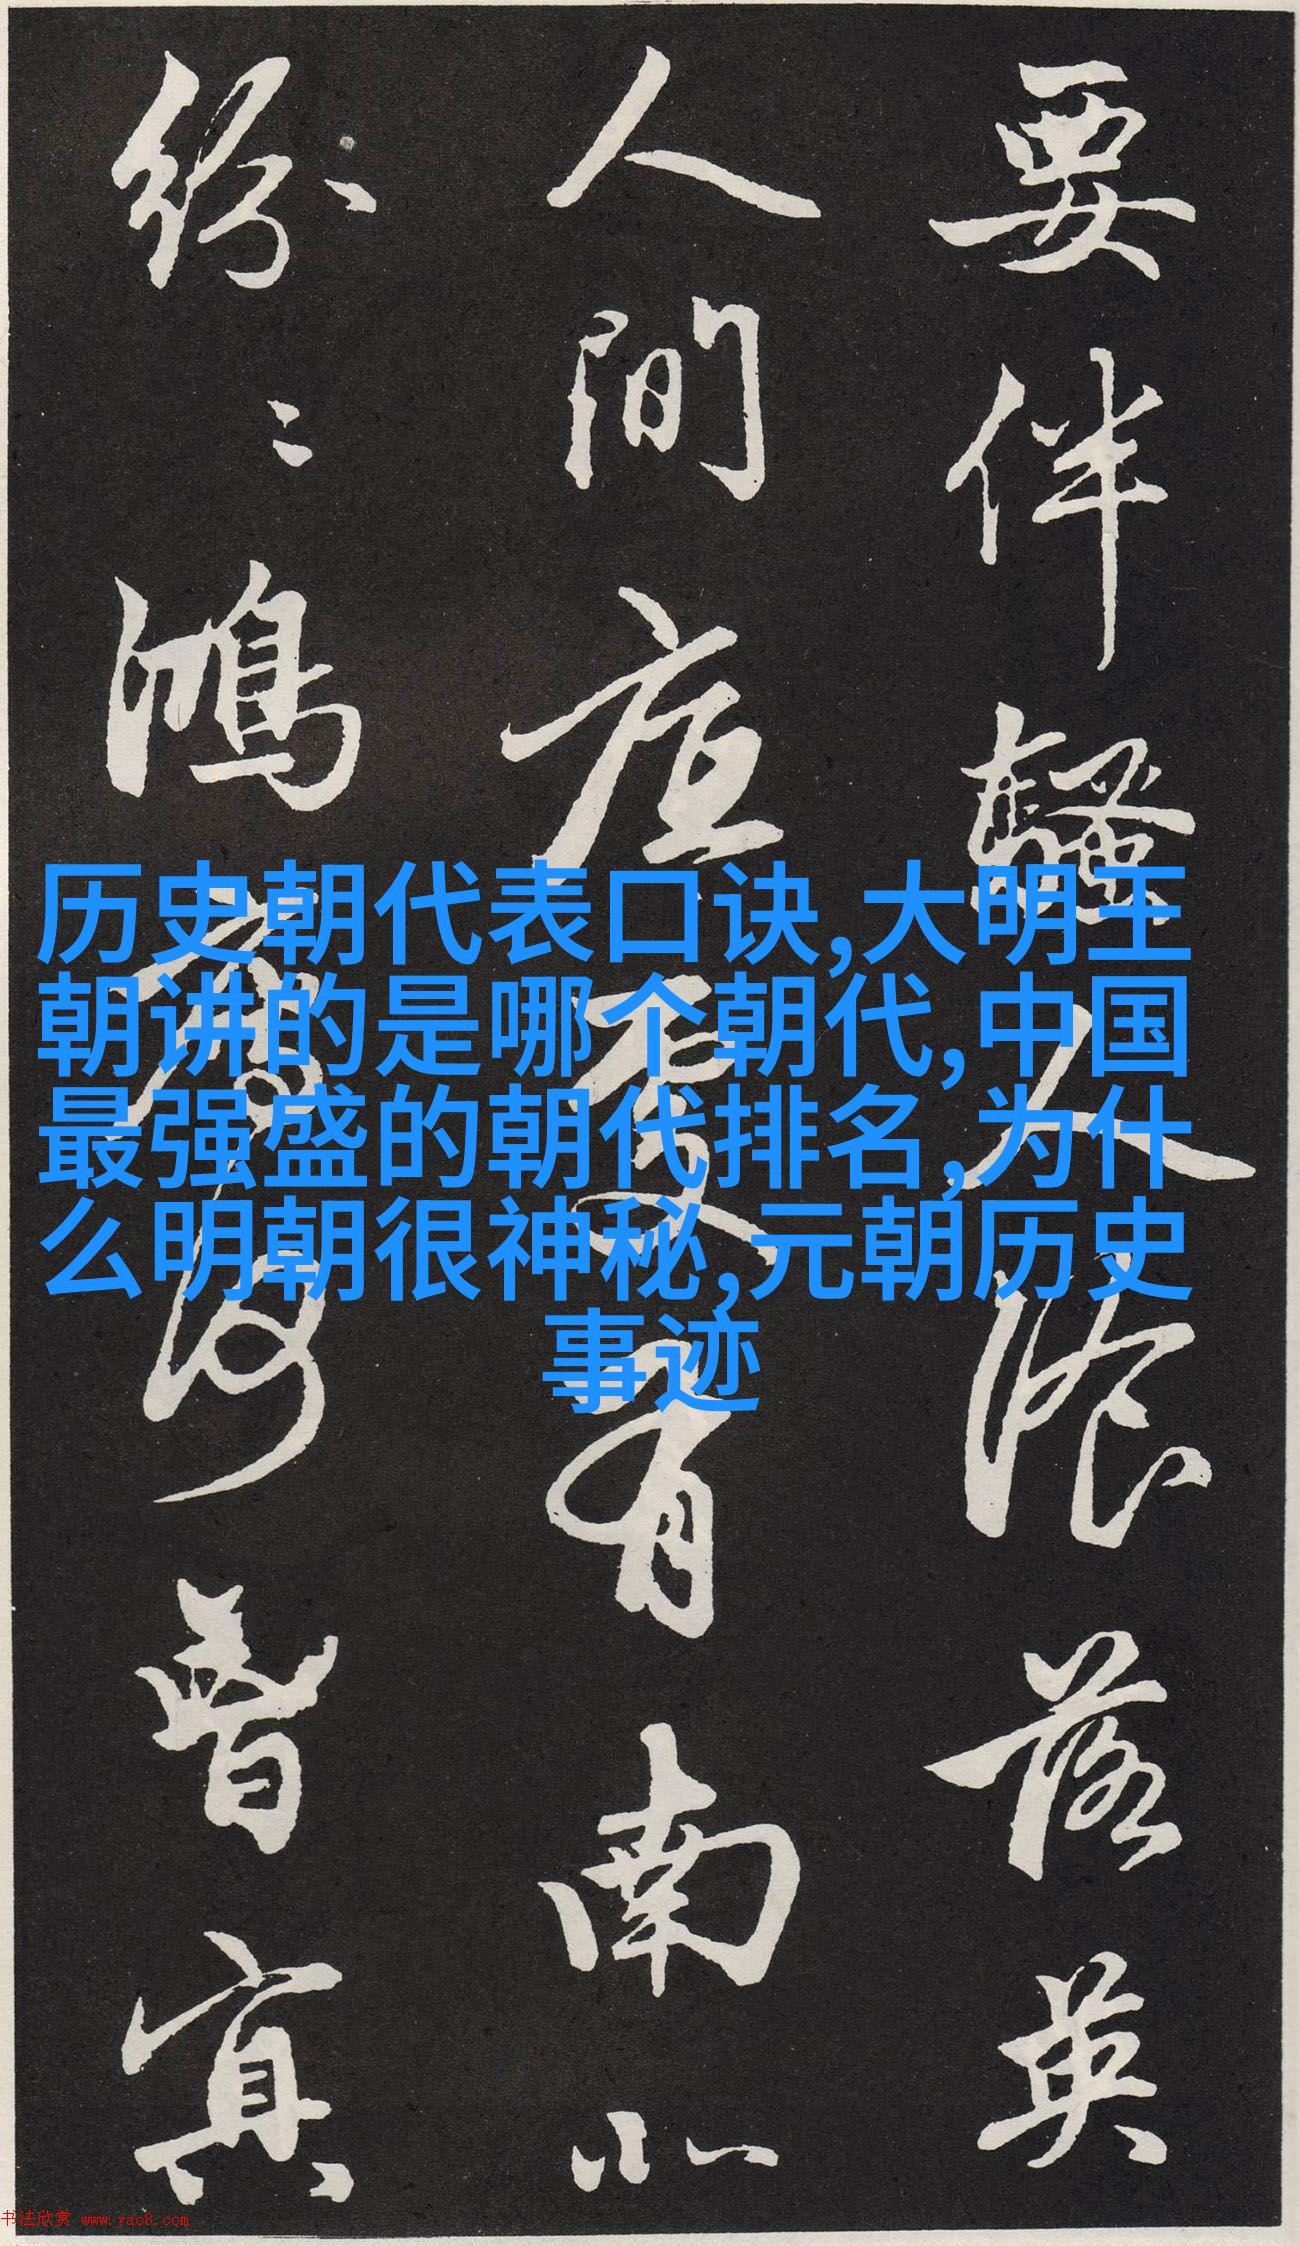 要伴騷人浪落英
人間應更有南北
紛〻鴻𫠉何皆冥
历史朝代表口诀,大明王
朝讲的是哪个朝代,中国
最强盛的朝代排名,为什
么明朝很神秘,元朝历史
事迹
书法欣赏 www.yac8.com